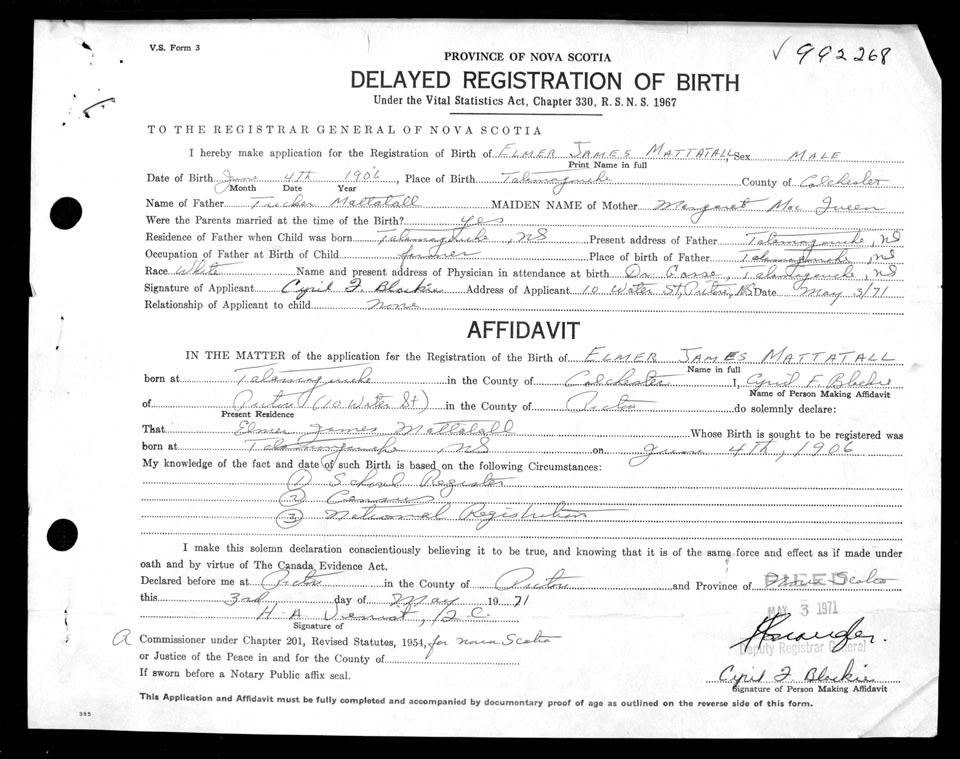 V.S. Form 3
√ 992268
PROVINCE OF NOVA SCOTIA
DELAYED REGISTRATION OF BIRTH
Under the Vital Statistics Act, Chapter 330, R. S. N. S. 1967
TO THE REGISTRAR GENERAL OF NOVA SCOTIA
I hereby make application for the Registration of Birth of ELMER JAMES MATTATALL Sex MALE
Print Name in full
Date of Birth June 4TH 1906, Place of Birth Tatamagouche County of Colchester
Month Date Year
Name of Father Tucker Mattatall MAIDEN NAME of Mother Margaret Mac Queen
Were the Parents married at the time of the Birth? Yes
Residence of Father when Child was born Tatamagouche, NS Present address of Father Tatamagouche, NS
Occupation of Father at Birth of Child farmer Place of birth of Father Tatamagouche, NS
Race White Name and present address of Physician in attendance at birth Dr. , Tatamagouche, NS
Signature of Applicant Cyril F. Blackie Address of Applicant 10 Water St, Pictou, NS Date May 3/71
Relationship of Applicant to child None
AFFIDAVIT
IN THE MATTER of the application for the Registration of the Birth of ELMER JAMES MATTATALL
Name in full
born at Tatamagouche in the County of Colchester I, Cyril F. Blackie
Name of Person Making Affidavit
of Pictou (10 Water St) in the County of Pictou do solemnly declare:
Present Residence
That Elmer James Mattatall Whose Birth is sought to be registered was
born at Tatamagouche, NS on June 4TH, 1906
My knowledge of the fact and date of such Birth is based on the following Circumstances:
① School Register
② Census
③ National Registration
I make this solemn declaration conscientiously believing it to be true, and knowing that it is of the same force and effect as if made under
oath and by virtue of The Canada Evidence Act.
Declared before me at Pictou in the County of Pictou and Province of Nova Scotia
this 3rd day of May 1971
MAY 3 1971
H. A. , Q.C.
Signature of
A Commissioner under Chapter 201, Revised Statutes, 1954, for Nova Scotia
Deputy Registrar General
or Justice of the Peace in and for the County of
If sworn before a Notary Public affix seal.
Cyril F. Blackie
Signature of Person Making Affidavit
This Application and Affidavit must be fully completed and accompanied by documentary proof of age as outlined on the reverse side of this form.